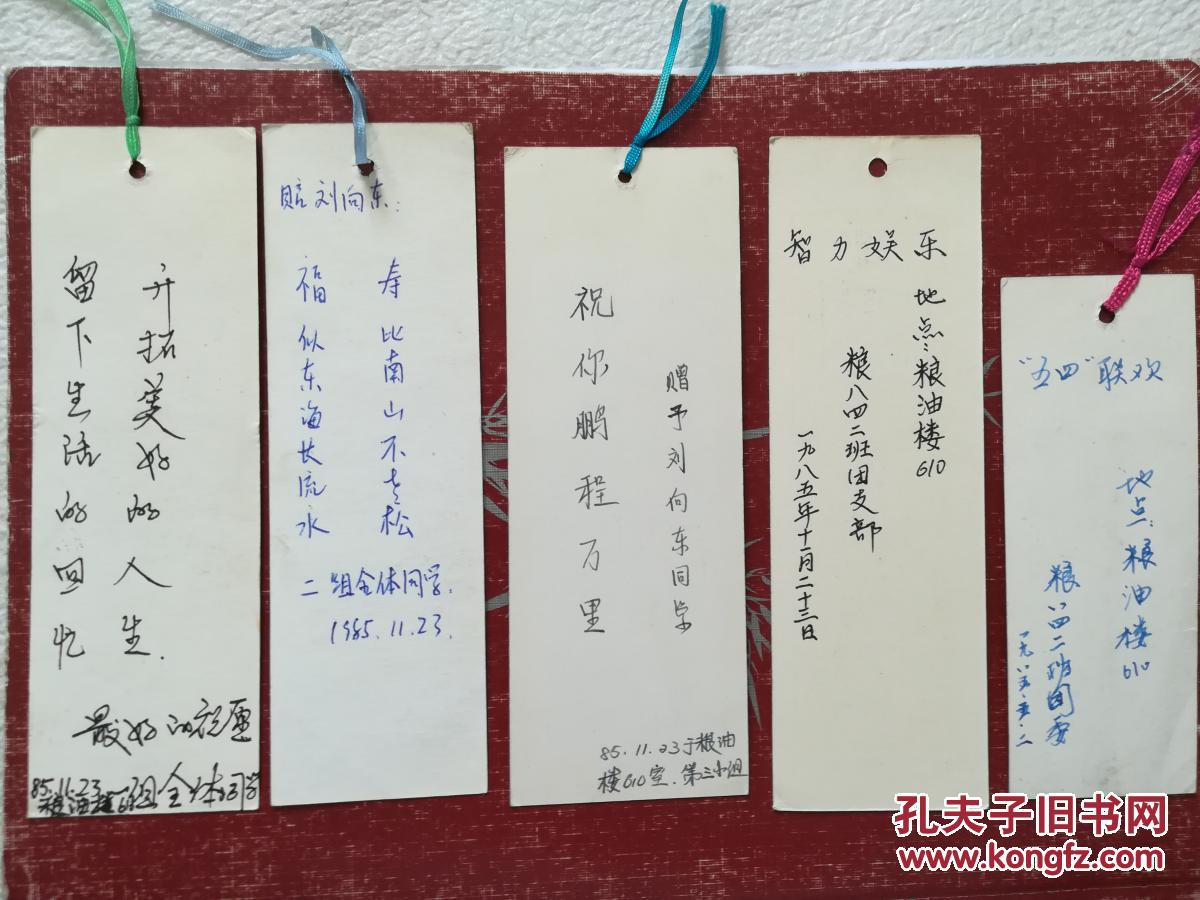 开拓美好的人生.
留下生活的回忆
最好的祝愿
85.11.23 一组全体同学
粮油楼610
赠刘向东:
寿比南山不老松
福似东海长流水
二组全体同学.
1985.11.23.
赠予刘向东同学
祝你鹏程万里
85.11.23于粮油
楼610室.第三小组
智力娱乐
地点:粮油楼610
粮八四二班团支部
一九八五年十一月二十三日
"五四"联欢
地点:粮油楼610
粮八四二班团委
一九八五.五.二
孔夫子旧书网
www.kongfz.com